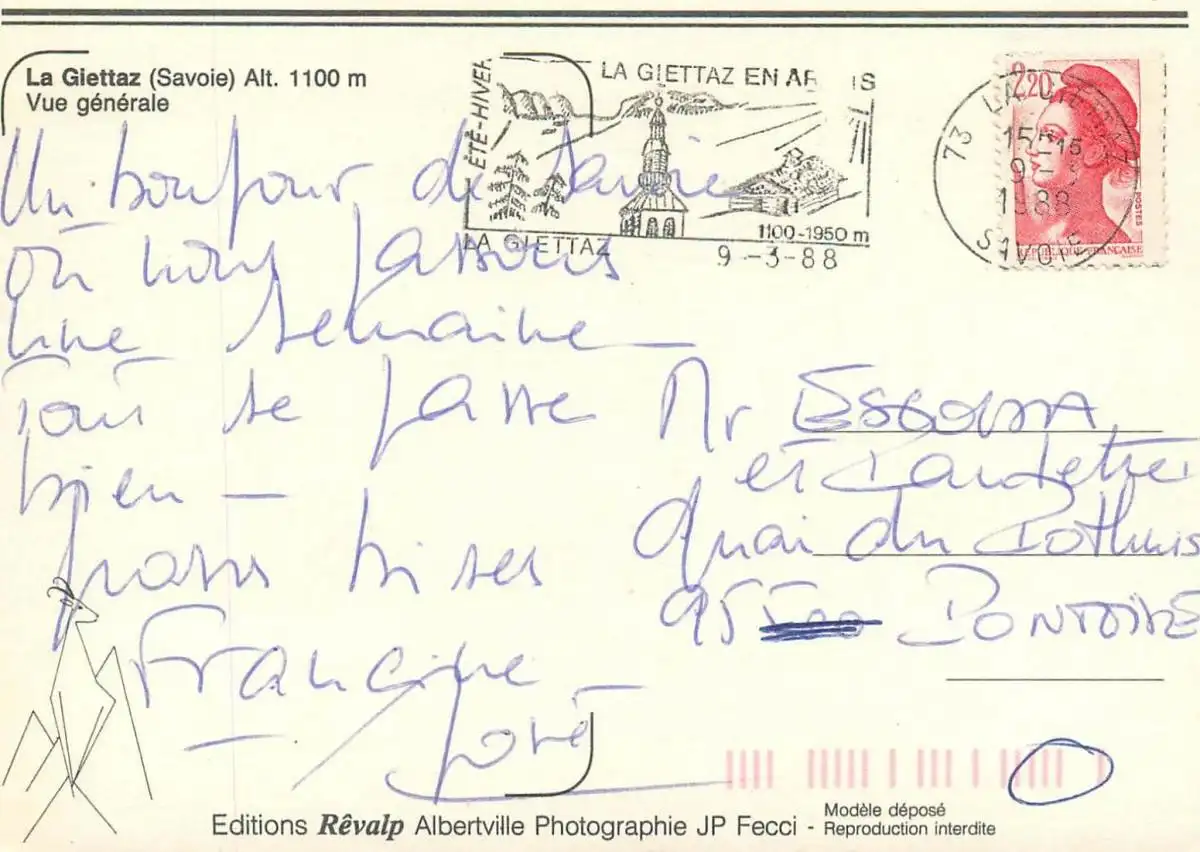 La Giettaz (Savoie) Alt. 1100 m
Vue générale
ÉTÉ-HIVER
LA GIETTAZ EN AR IS
LA GIETTAZ
1100-1950 m
9-3-88
73 LA GIETTAZ
15H15
9-3
1988
SAVOIE
2,20
POSTES
REPUBLIQUE FRANÇAISE
Un bonjour de Savoie
où nous passons
une semaine
Tout se passe
bien —
gros bises
Francine
José
Mr
et
Quai du Pothuis
95 PONTOISE
Editions Rêvalp Albertville Photographie JP Fecci - Modèle déposé
Reproduction interdite